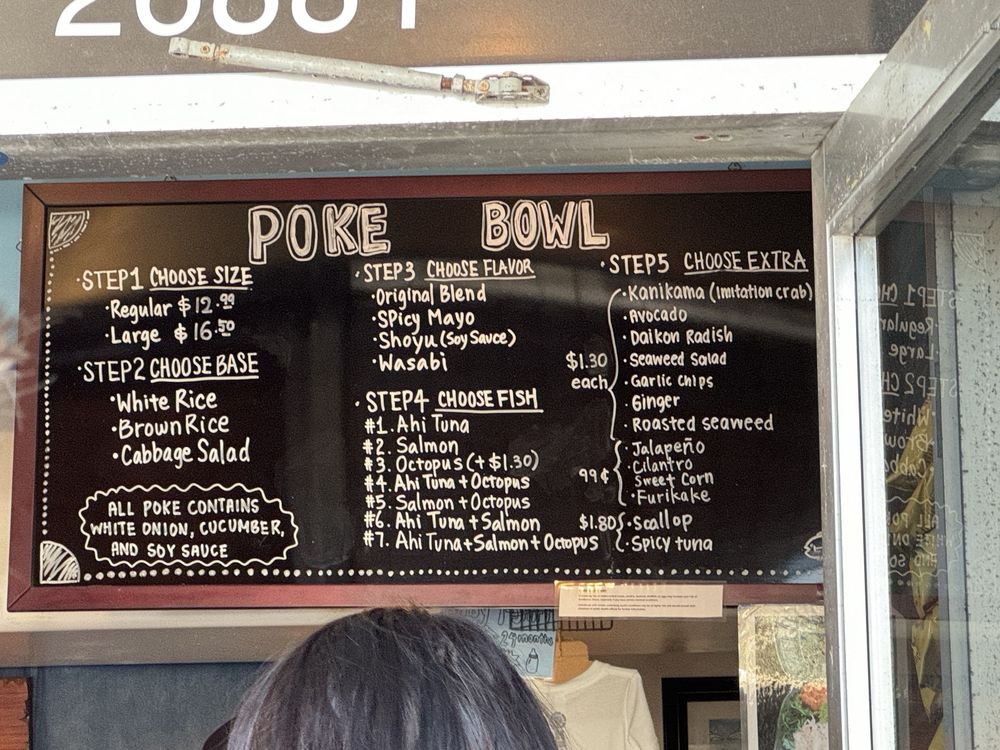 POKE BOWL
·STEP1 CHOOSE SIZE
·Regular $12.99
·Large $16.50
·STEP2 CHOOSE BASE
·White Rice
·Brown Rice
·Cabbage Salad
ALL POKE CONTAINS
WHITE ONION, CUCUMBER,
AND SOY SAUCE
·STEP3 CHOOSE FLAVOR
·Original Blend
·Spicy Mayo
·Shoyu (Soy Sauce)
·Wasabi
·STEP4 CHOOSE FISH
#1. Ahi Tuna
#2. Salmon
#3. Octopus (+$1.30)
#4. Ahi Tuna + Octopus
#5. Salmon + Octopus
#6. Ahi Tuna + Salmon
#7. Ahi Tuna + Salmon + Octopus
·STEP5 CHOOSE EXTRA
$1.30
each
·Kanikama (imitation crab)
·Avocado
·Daikon Radish
·Seaweed Salad
·Garlic Chips
·Ginger
·Roasted seaweed
99¢
·Jalapeño
·Cilantro
Sweet Corn
·Furikake
$1.80
·Scallop
·Spicy tuna